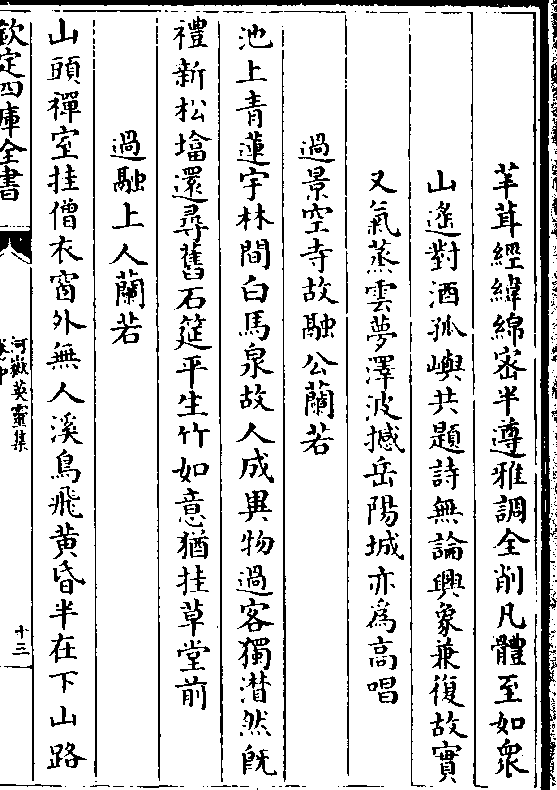 芊茸經緯綿密半遵雅調全削凡體至如衆
山遙對酒孤嶼共題詩無論興象兼復故實
又氣蒸雲夢澤波撼岳陽城亦爲高唱
過景空寺故融公蘭若
池上青蓮宇林間白馬泉故人成異物過客獨潸然旣
禮新松㙮還尋舊石筵平生竹如意猶挂草堂前
過融上人蘭若
山頭禪室挂僧衣窗外無人溪鳥飛黄昏半在下山路
欽定四庫全書
河嶽英靈集
卷中
十三